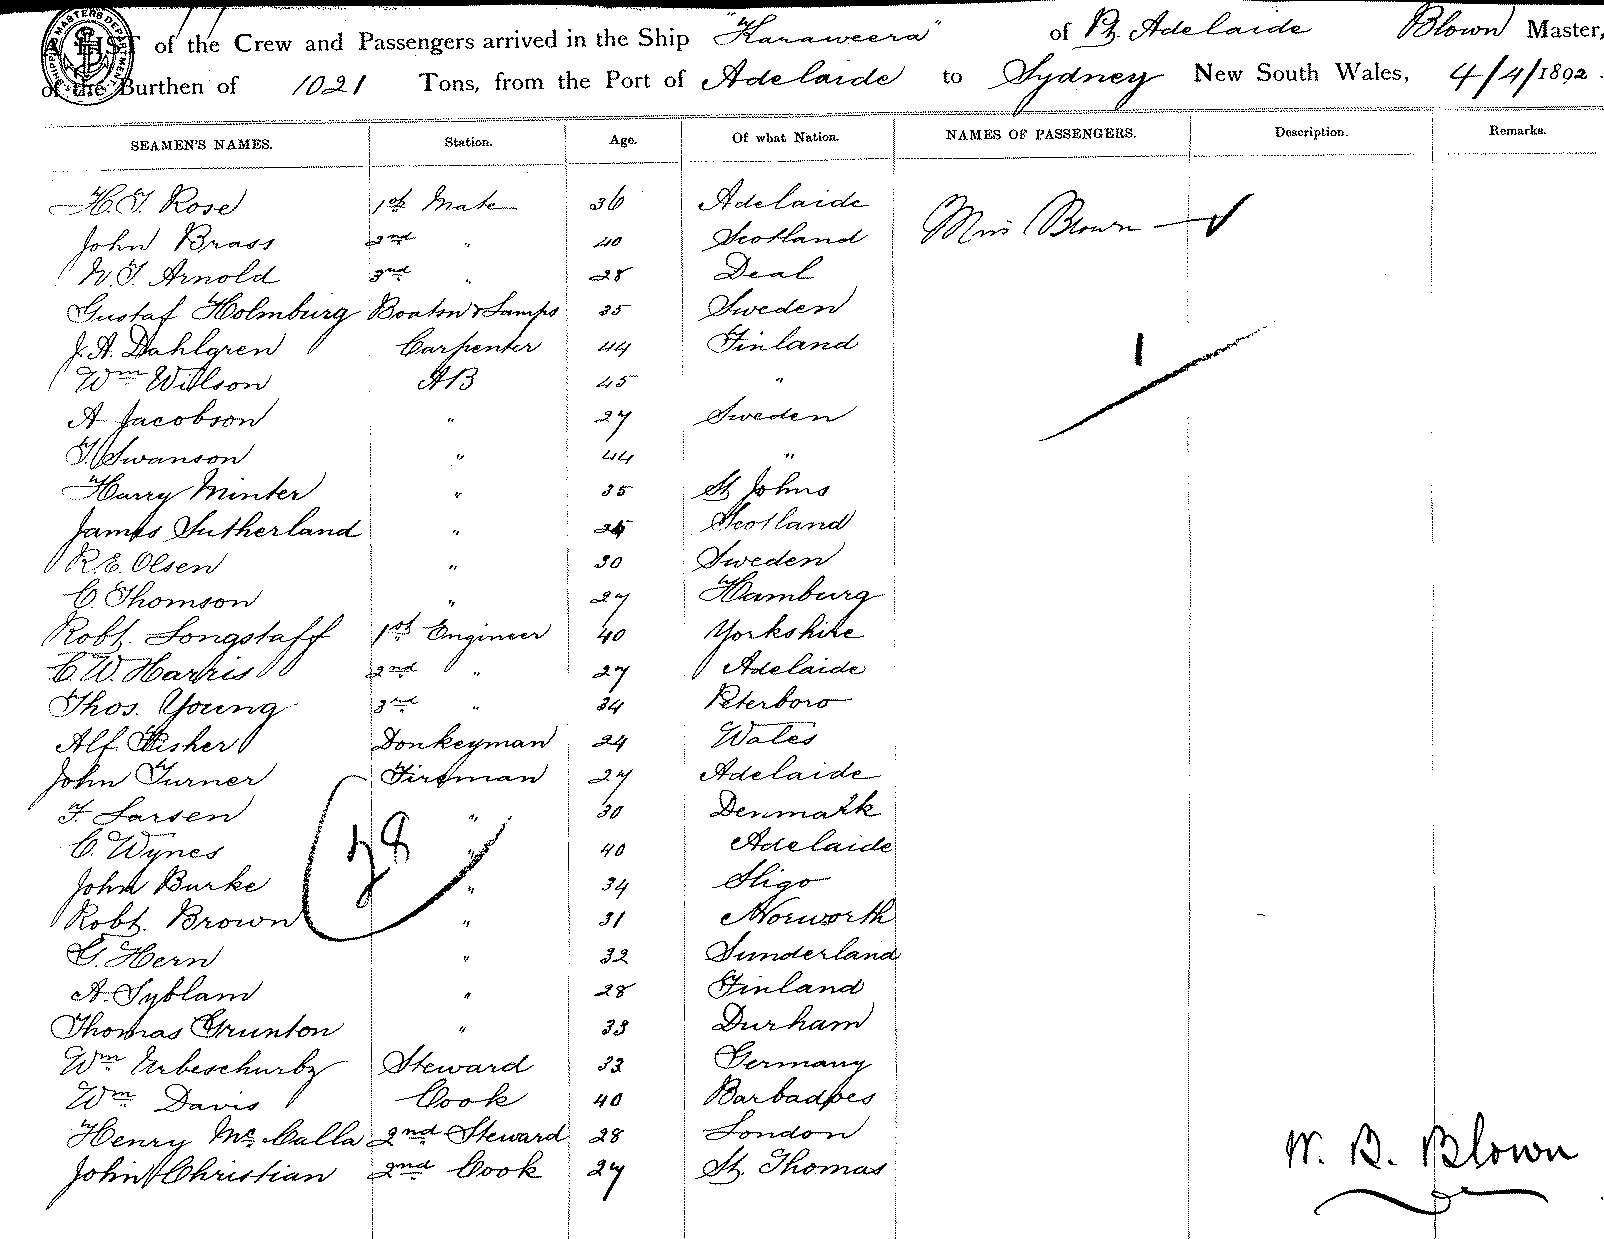 A LIST of the Crew and Passengers arrived in the Ship "Kanaweera" of Pt Adelaide Blown Master,
of the Burthen of 1021 Tons, from the Port of Adelaide to Sydney New South Wales, 4/4/1892.
SEAMEN'S NAMES. Station. Age. Of what Nation. NAMES OF PASSENGERS. Description. Remarks.
H. J. Rose 1st Mate 36 Adelaide Miss Blown
John Brass 2nd " 40 Scotland
W. J. Arnold 3rd " 28 Deal
Gustaf Holmburg Boatsn & Lamps 35 Sweden
J. A. Dahlgren Carpenter 44 Finland 1
Wm Wilson AB 45 "
A Jacobson " 27 Sweden
J. Swanson " 44 "
Harry Minter " 35 St Johns
James Sutherland " Scotland
R. E. Olsen " 30 Sweden
C. Thomson " 27 Hamburg
Robt. Longstaff 1st Engineer 40 Yorkshire
C. W. Harris 2nd " 27 Adelaide
Thos. Young 3rd " 34 Peterboro
Alf. Fisher Donkeyman 24 Wales
John Turner Fireman 27 Adelaide
F. Larsen " 30 Denmark
C. Wynes " 40 Adelaide
28
John Burke " 34 Sligo
Robt. Brown " 31 Norworth
G. Hern " 32 Sunderland
A. Syblam " 28 Finland
Thomas Grunton " 33 Durham
Wm Urbeschurbz Steward 33 Germany
Wm Davis Cook 40 Barbadoes
Henry Mc Calla 2nd Steward 28 London
John Christian 2nd Cook 27 St Thomas
W. B. Blown